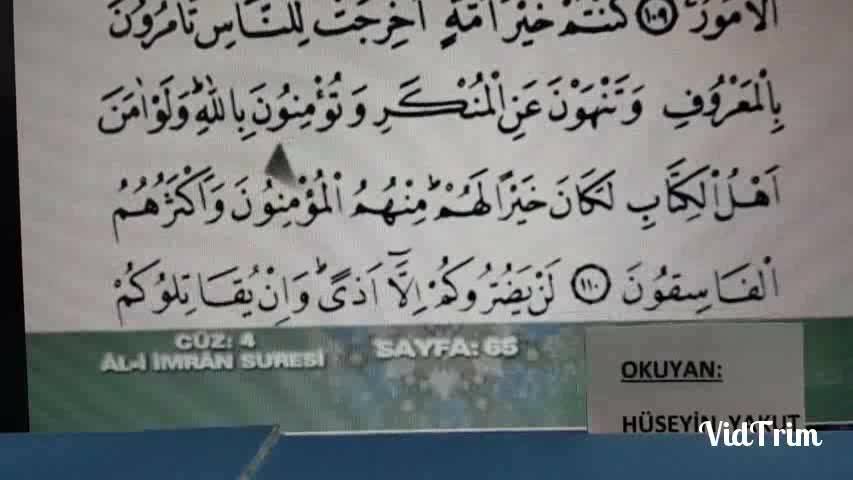 الْاُمُورُ ﴿١٠٩﴾ كُنْتُمْ خَيْرَ اُمَّةٍ اُخْرِجَتْ لِلنَّاسِ تَأْمُرُونَ
بِالْمَعْرُوفِ وَتَنْهَوْنَ عَنِ الْمُنْكَرِ وَتُؤْمِنُونَ بِاللّٰهِۜ وَلَوْ اٰمَنَ
اَهْلُ الْكِتَابِ لَكَانَ خَيْرًا لَهُمْۜ مِنْهُمُ الْمُؤْمِنُونَ وَاَكْثَرُهُمُ
الْفَاسِقُونَ ﴿١١٠﴾ لَنْ يَضُرُّوكُمْ اِلَّٓا اَذًىۜ وَاِنْ يُقَاتِلُوكُمْ
CÜZ: 4
ÂL-İ İMRÂN SURESİ
SAYFA: 65
OKUYAN:
HÜSEYİN YAKUT
VidTrim